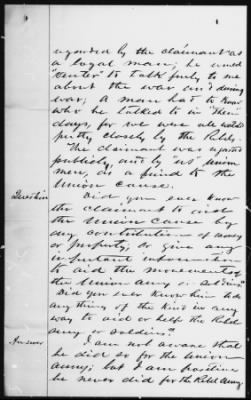 regarded by the claimant as
a loyal man; he would
"venter" to talk freely to me
about the war and during
war; a man had to know
who he talked to in "them
days, for we were all watched
pretty closely by the Rebs.
The claimant was regarded
publicly, and by us Union
men, as a friend to the
Union cause.
Question Did you ever know
the claimant to aid
the Union cause by
any contributions of money
or property, or give any
important information
to aid the movements of
the Union army or soldiers"
Did you ever know him do
anything of the kind in any
way to aid or help the Rebel
army or soldiers?
Answer I am not aware that
he did so for the Union
army; but I am positive
he never did for the Rebel Army